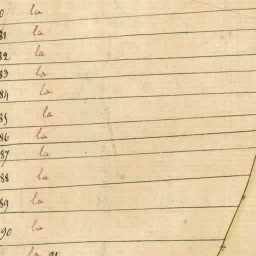 0 la
81 la
82 la
83 la
84 la
85 la
86 la
87 la
88 la
89 la
90 la
la 91